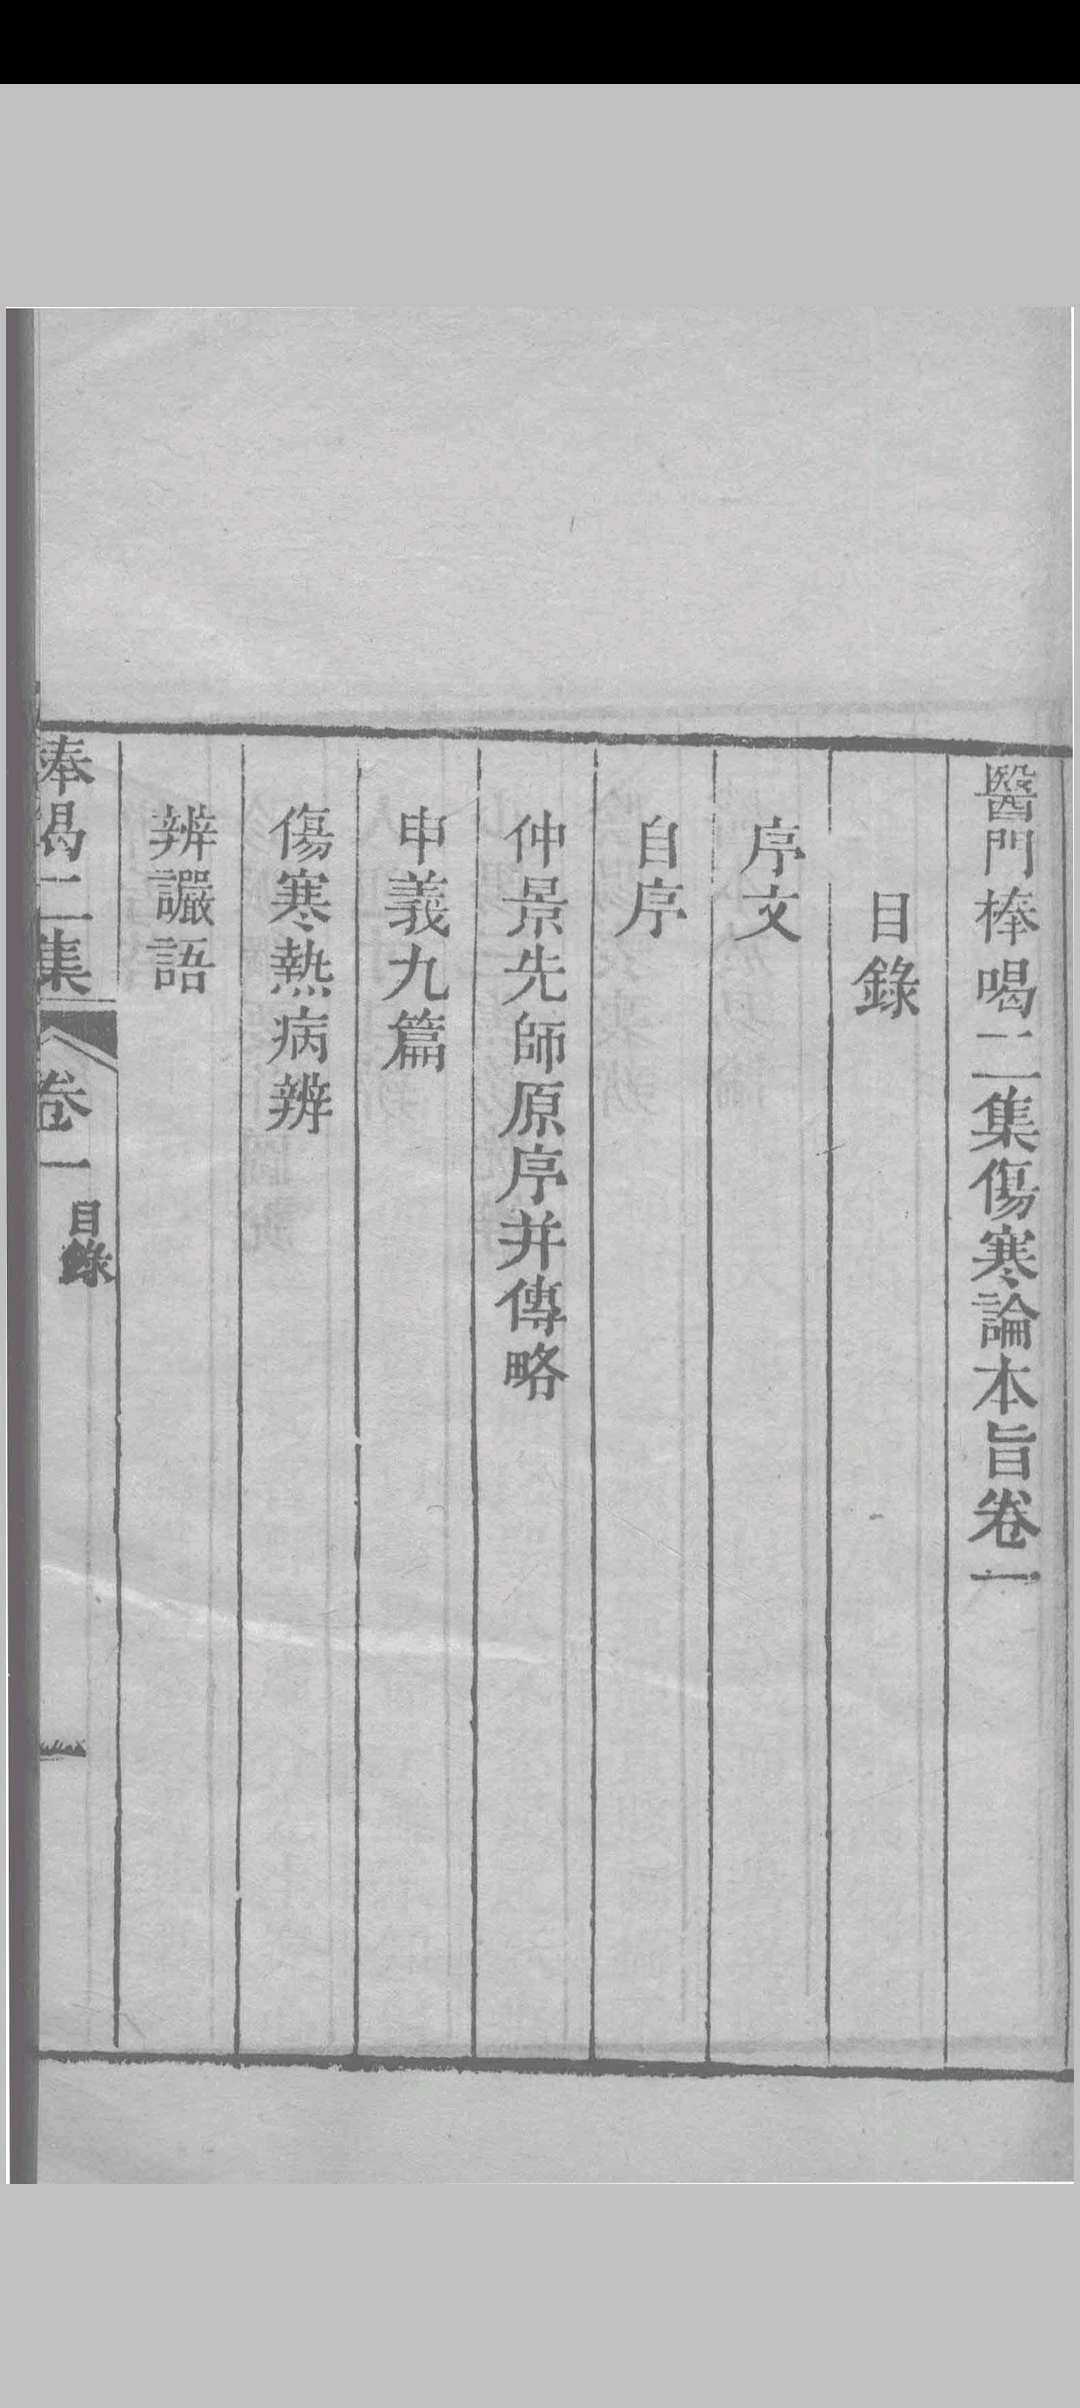 醫門棒喝二集傷寒論本旨卷一
目錄
序文
自序
仲景先師原序并傳略
申義九篇
傷寒熱病辨
辨讝語
棒喝二集 卷一 目錄 一